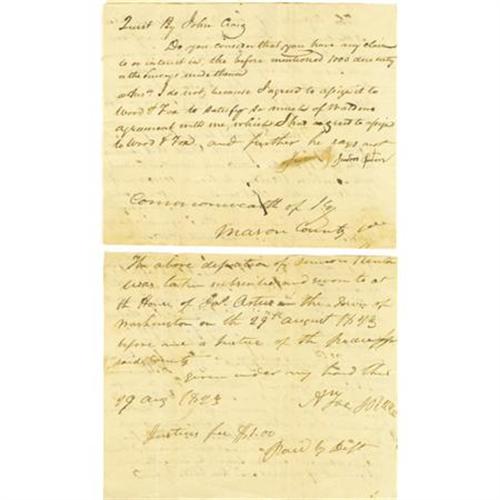 Quest By John Craig
Do you conceive that you have any claim
to or interest in, the before mentioned 1000 acre entry
or the surveys made thereon
Ans. I do not, because I agreed to assign it to
Wood & Fox to satisfy so much of Waldens
agreement with me, which I had agreed to assign
to Wood & Fox, and further he says not
Commonwealth of Ky
Mason County
The above deposition of Simeon Kenton
was taken subscribed and sworn to at
the House of in the Town of
Washington on the 29th august 1823
before me a Justice of the Peace for
said County
given under my hand this
29 aug 1823
Justices fee $1.00
Paid by Deft